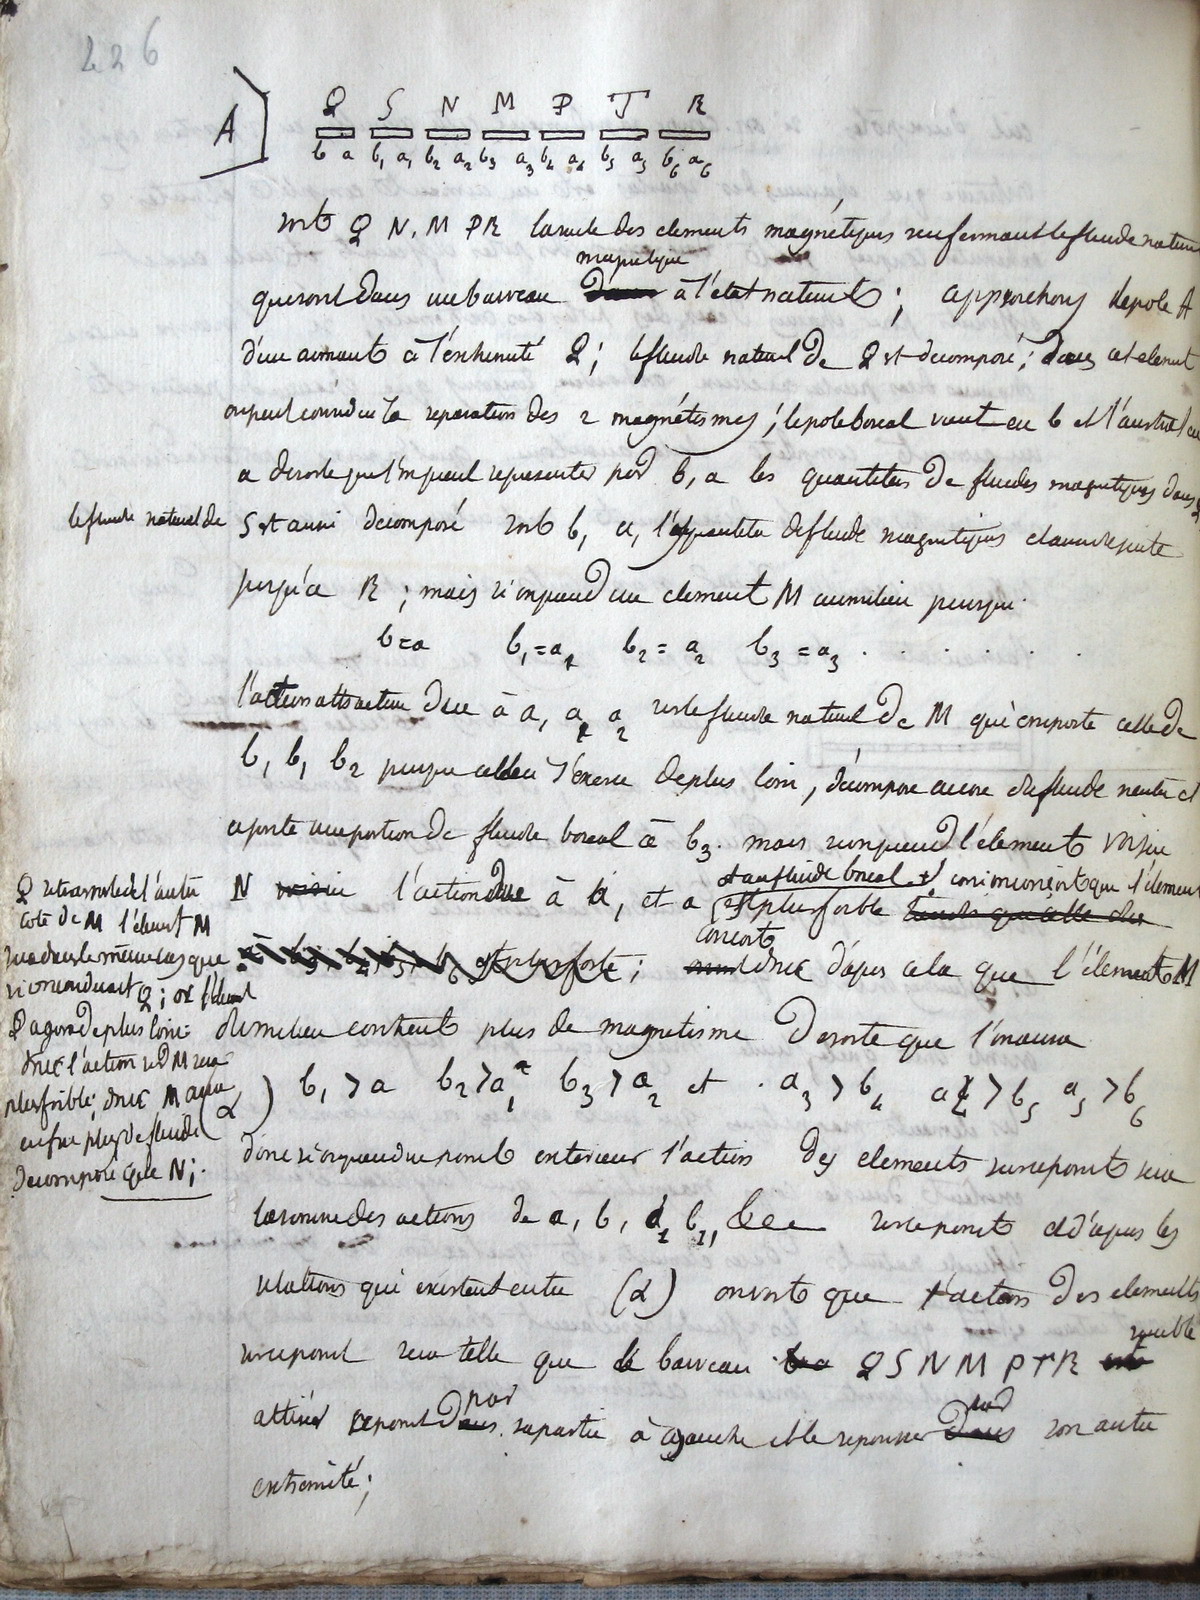 426
A
Q S N M P T R
b a b₁ a₁ b₂ a₂ b₃ a₃ b₄ a₄ b₅ a₅ b₆ a₆
soit Q N, M P R la suite des elements magnétiques renfermant le fluide naturel
magnetique
qui sont dans un barreau à l'etat naturel ; approchons le pole A
d'un aimant à l'extremité Q ; le fluide naturel de Q est decomposé ; dans cet element
on peut considerer la separation des 2 magnétismes ; le pole boreal vient en b et l'austral en
a de sorte que l'on peut representer par b, a les quantités de fluides magnetiques dans Q
le fluide naturel de S est aussi decomposé soit b₁ a₁ la quantité de fluide magnetiques et ainsi de suite
jusqu'a R ; mais si on prend un element M au milieu puisque
b=a b₁=a₁ b₂=a₂ b₃=a₃ . . . . . .
l'action attractive due à a, a₁ a₂ sur le fluide naturel de M qui emporte celle de
b, b₁ b₂ puisque celle ci s'exerce de plus loin, décompose encore du fluide neutre et
ajoute une portion de fluide boreal à b₃. mais si on prend l'élement voisin
et au fluide boreal
N l'action due à b, et a est plus foible
si on conçoit que l'élement
Q
cote de M l'élement M
sera dans le même cas que
si on eut Q ; or
P agira de plus loin
donc l'action sur M sera
plus foible, donc M aura
plus de fluide
decomposé que N ;
conçoit
donc d'apres cela que l'élement M
du milieu contient plus de magnetisme De sorte que l'on aura
(α) b₁ > a b₂ > a₁ b₃ > a₂ et . a₃ > b₄ a₄ > b₅ a₅ > b₆
donc si on prend un point exterieur l'action des elements sur ce point sera
la somme des actions de a, b, a₁ b₁, &c sur ce point et d'apres les
relations qui existent entre (α) on voit que l'action des elements
sur ce point sera telle que le barreau Q S N M P T R semble
attirer ce point par sa partie à gauche et le repousser par son autre
extremité ;